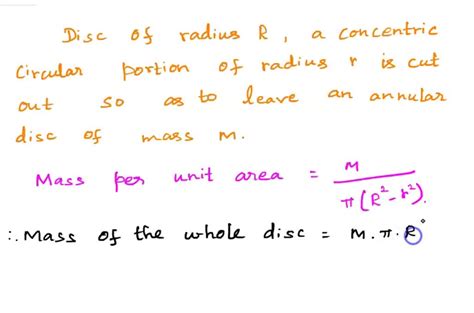 Disc of radius R, a concentric
circular portion of radius r is cut
out so as to leave an annular
disc of mass M.
Mass per unit area = M / π(R²-r²).
∴ Mass of the whole disc = M.π.R